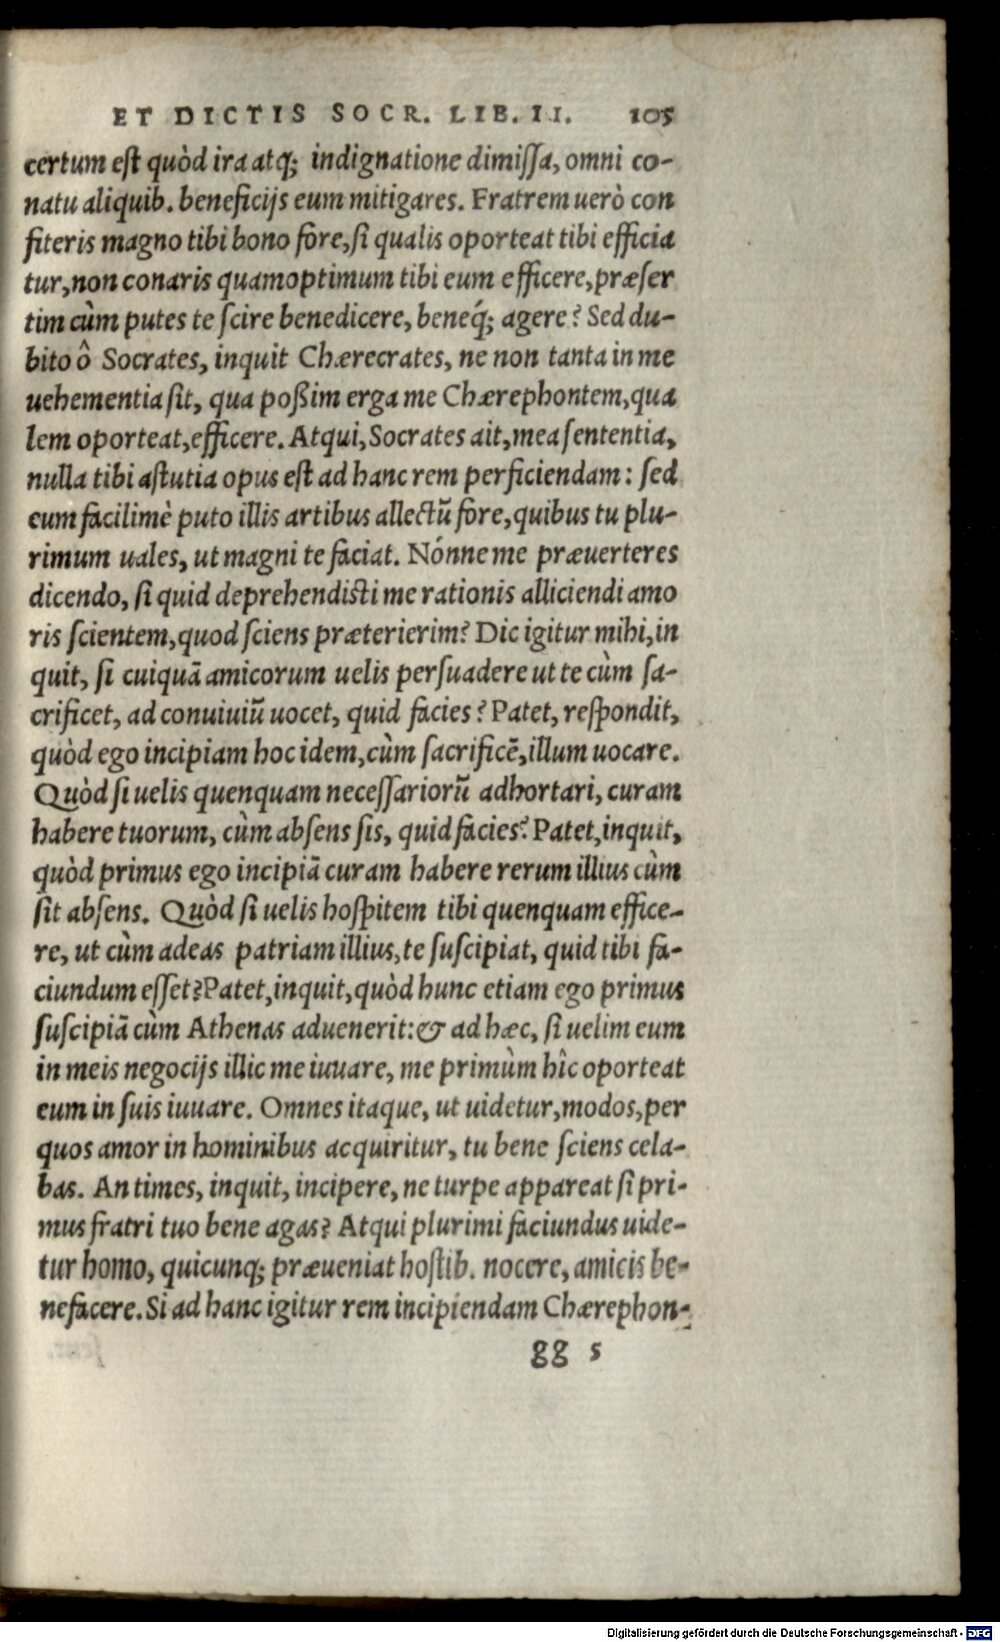 ET DICTIS SOCR. LIB. II. 105
certum est quòd ira atq; indignatione dimissa, omni co-
natu aliquib. beneficijs eum mitigares. Fratrem uerò con
fiteris magno tibi bono fore, si qualis oporteat tibi efficia
tur, non conaris quamoptimum tibi eum efficere, præser
tim cùm putes te scire benedicere, beneq́; agere? Sed du-
bito ô Socrates, inquit Chærecrates, ne non tanta in me
uehementia sit, qua poßim erga me Chærephontem, qua
lem oporteat, efficere. Atqui, Socrates ait, mea sententia,
nulla tibi astutia opus est ad hanc rem perficiendam: sed
eum facilimè puto illis artibus allectũ fore, quibus tu plu-
rimum uales, ut magni te faciat. Nónne me præuerteres
dicendo, si quid deprehendisti me rationis alliciendi amo
ris scientem, quod sciens præterierim? Dic igitur mihi, in
quit, si cuiquã amicorum uelis persuadere ut te cùm sa-
crificet, ad conuiuiũ uocet, quid facies? Patet, respondit,
quòd ego incipiam hoc idem, cùm sacrificẽ, illum uocare.
Quòd si uelis quenquam necessariorũ adhortari, curam
habere tuorum, cùm absens sis, quid facies? Patet, inquit,
quòd primus ego incipiã curam habere rerum illius cùm
sit absens. Quòd si uelis hospitem tibi quenquam effice-
re, ut cùm adeas patriam illius, te suscipiat, quid tibi fa-
ciundum esset? Patet, inquit, quòd hunc etiam ego primus
suscipiã cùm Athenas aduenerit: & ad hæc, si uelim eum
in meis negocijs illic me iuuare, me primùm hîc oporteat
eum in suis iuuare. Omnes itaque, ut uidetur, modos, per
quos amor in hominibus acquiritur, tu bene sciens cela-
bas. An times, inquit, incipere, ne turpe appareat si pri-
mus fratri tuo bene agas? Atqui plurimi faciundus uide-
tur homo, quicunq; præueniat hostib. nocere, amicis be-
nefacere. Si ad hanc igitur rem incipiendam Chærephon-
gg 5
Digitalisierung gefördert durch die Deutsche Forschungsgemeinschaft - DFG